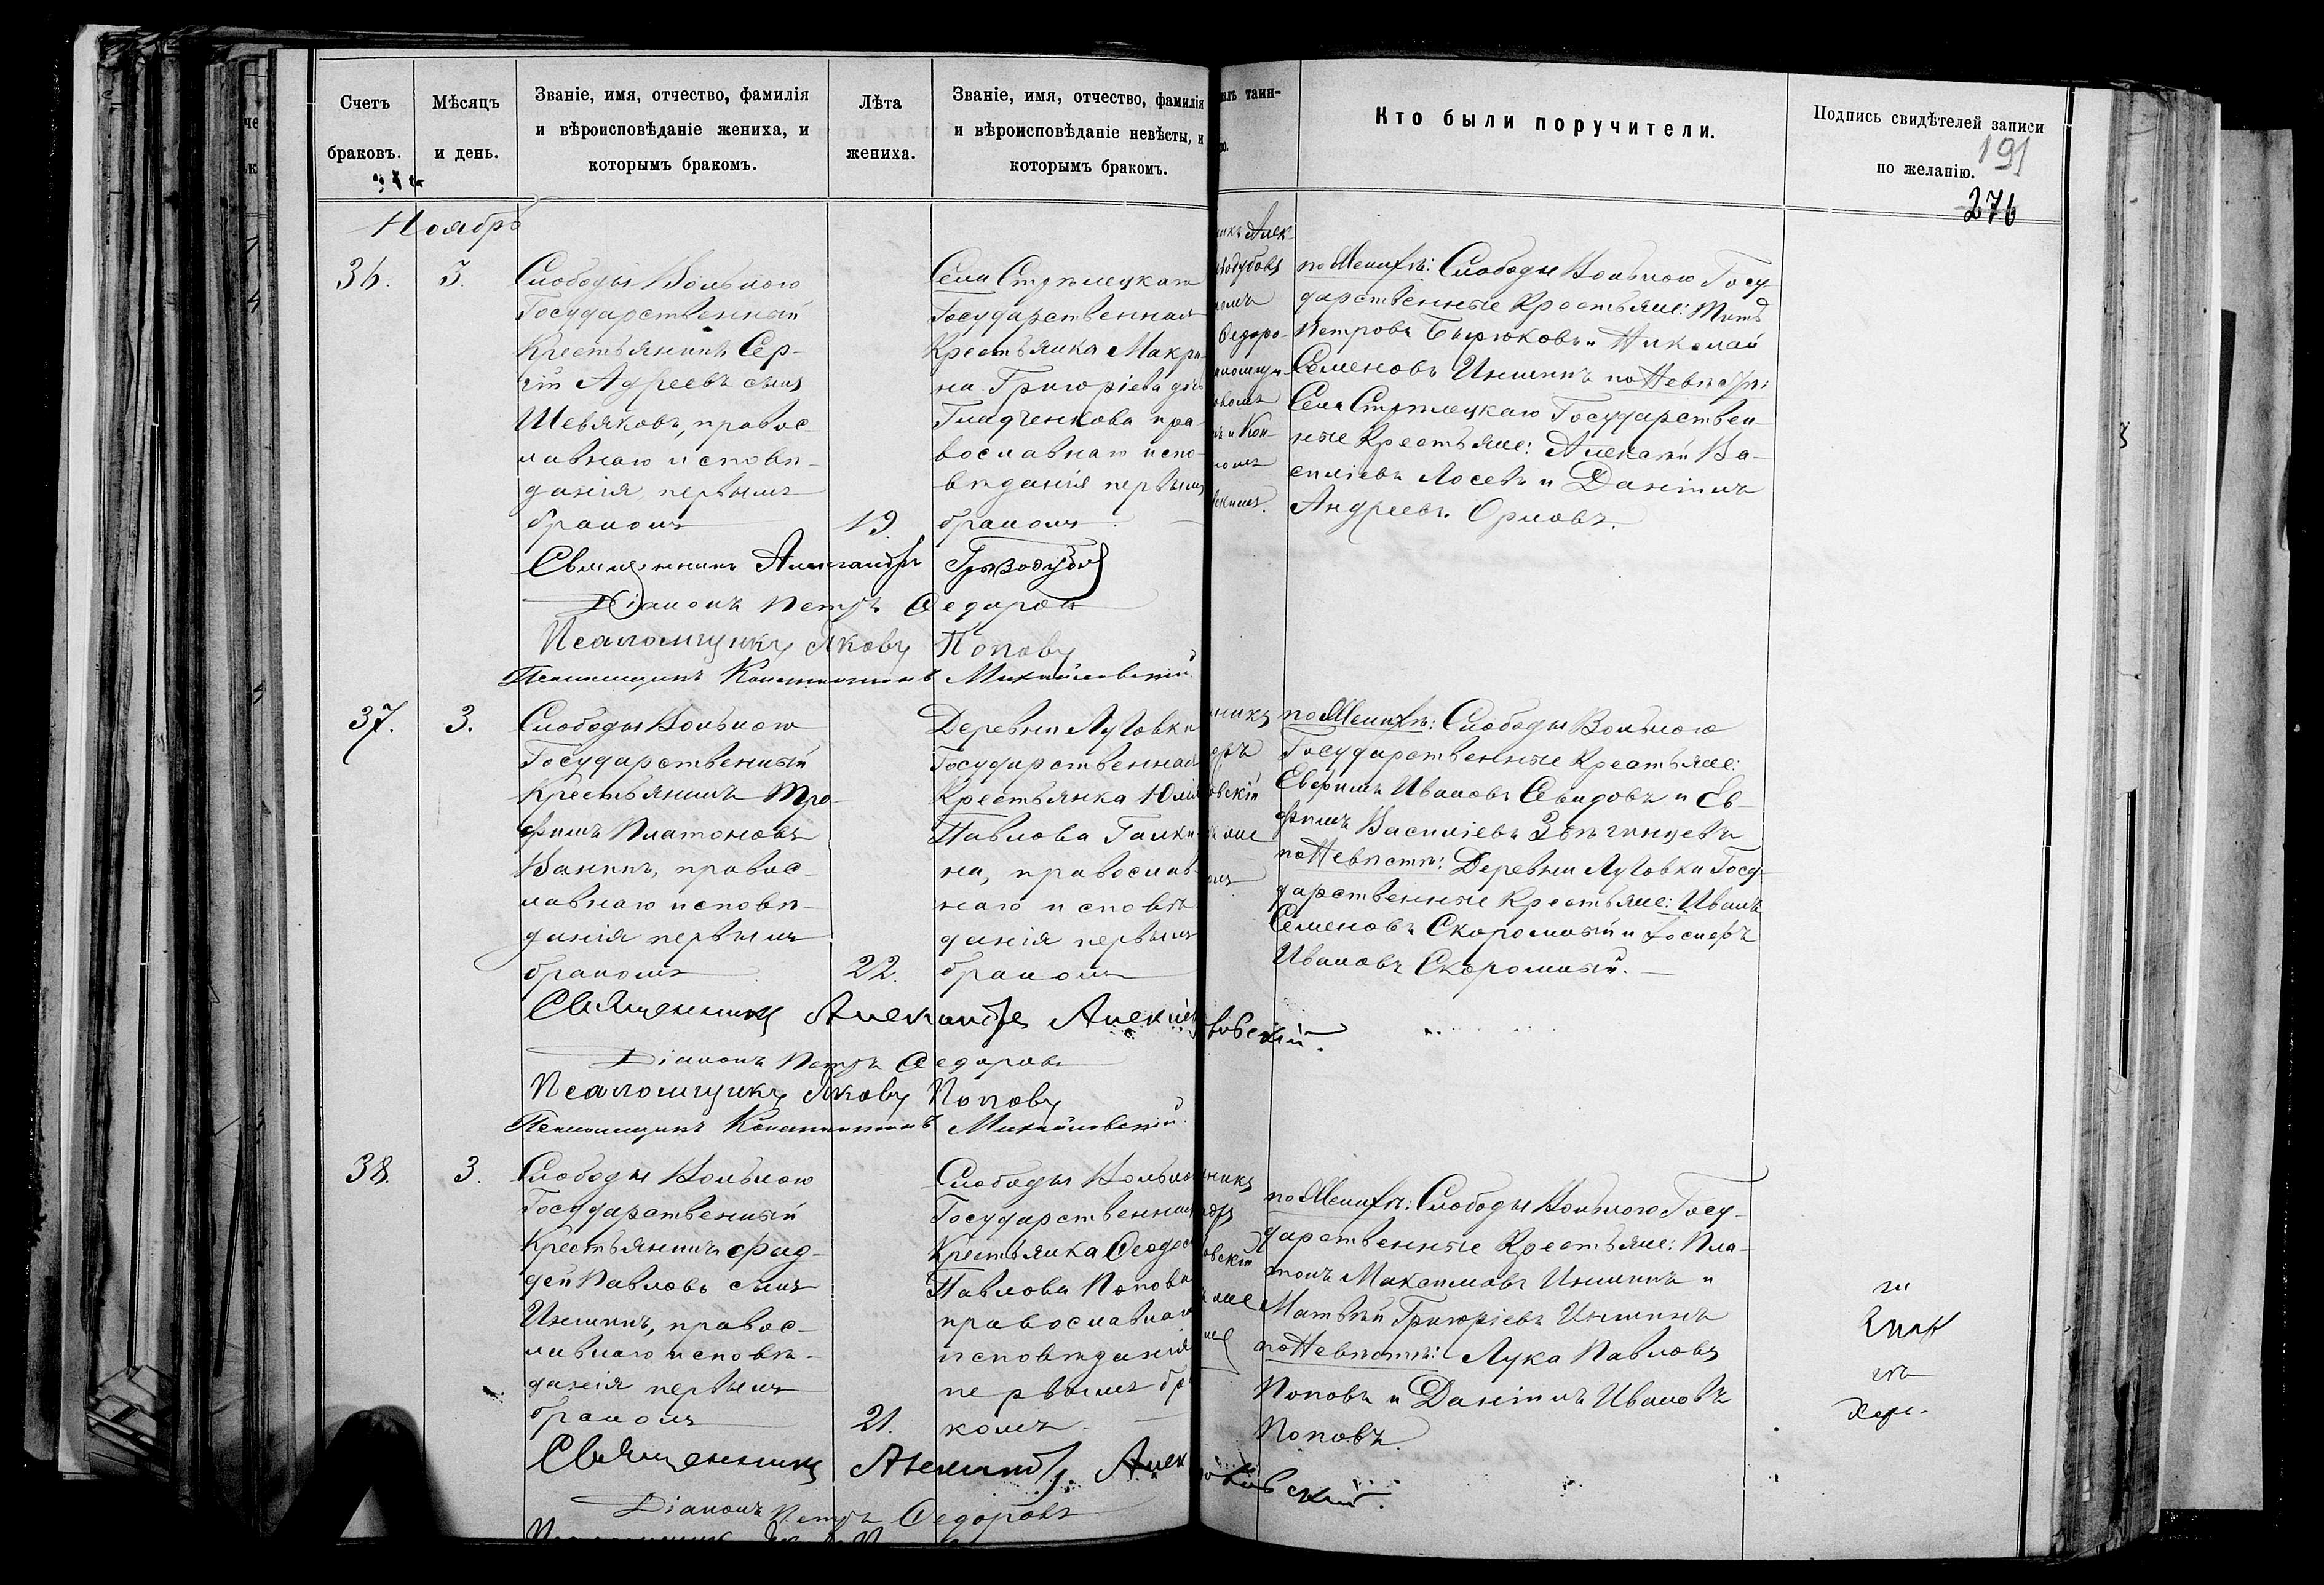 Счетъ
браковъ.
Мѣсяцъ
и день.
Званіе, имя, отчество, фамилія
и вѣроисповѣданіе жениха, и
которымъ бракомъ.
Лѣта
жениха.
Званіе, имя, отчество, фамилія
и вѣроисповѣданіе невѣсты, и
которымъ бракомъ.
таин-
Кто были поручители.
Подпись свидѣтелей записи
по желанію.
191
276
Ноябрь
36.
3.
Слободы Вольного
Государственный
Крестьянинъ Сер-
гій Адреевъ сынъ
Шевяковъ, правос-
лавнаго исповѣ-
данія первымъ
бракомъ
19.
Села Стрѣлецкаго
Государственная
Крестьянка Макри-
на Григоріева
Гладченкова пра-
вославнаго испо-
вѣданія первымъ
бракомъ.
по Женихѣ: Слободы Вольного Госу-
дарственные Крестьяне: Титъ
Петровъ Бирюковъ и Николай
Семеновъ Иншинъ по Невѣстѣ:
Села Стрѣлецкаго Государствен-
ные Крестьяне: Алексѣй Ва-
силіевъ Лосевъ и Даніилъ
Андреевъ Орловъ.
Священникъ Александръ
Діаконъ Петръ Федоровъ
Псаломщикъ Яковъ Поповъ
Псаломщикъ Константинъ Михайловскій
37.
3.
Слободы Вольного
Государственный
Крестьянинъ Тро-
фимъ Платоновъ
Ванинъ, правос-
лавнаго исповѣ-
данія первымъ
бракомъ
22.
Деревни Луговки
Государственная
Крестьянка Юлія
Павлова Галки-
на, православ-
наго исповѣ-
данія первымъ
бракомъ
по Женихѣ: Слободы Вольного
Государственные Крестьяне:
Ивановъ и Ев-
фимъ Василіевъ
по Невѣстѣ: Деревни Луговки Госу-
дарственные Крестьяне: Иванъ
Семеновъ Скоромный и
Ивановъ Скоромный.
Священникъ Александръ
Діаконъ Петръ Федоровъ
Псаломщикъ Яковъ Поповъ
Псаломщикъ Константинъ Михайловскій
38.
3.
Слободы Вольного
Государственный
Крестьянинъ Фад-
дей Павловъ сынъ
Иншинъ, правос-
лавнаго исповѣ-
данія первымъ
бракомъ
21.
Слободы Вольного
Государственная
Крестьянка Феодос
Павлова Попова
православнаго
исповѣданія
первымъ бра
комъ.
по Женихѣ: Слободы Вольного Госу-
дарственные Крестьяне: Пла-
тонъ Максимовъ Иншинъ и
Матвѣй Григоріевъ Иншинъ
по Невѣстѣ: Лука Павловъ
Поповъ и Даніилъ Ивановъ
Поповъ.
Священникъ
Діаконъ Петръ Федоровъ